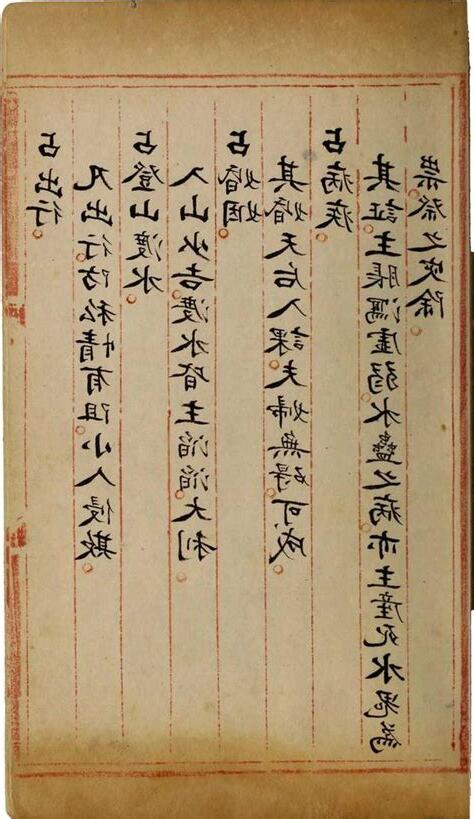 占出行
凡出行防私情有阻小人侵欺
占登山渡水
入山少吉渡水皆主滔滔大利
占婚姻
其婚天后入課夫婦無碍可成
占病疾
其証主脹瀉虛弱水蠱之病亦主產死水鬼為
祟祭之災除